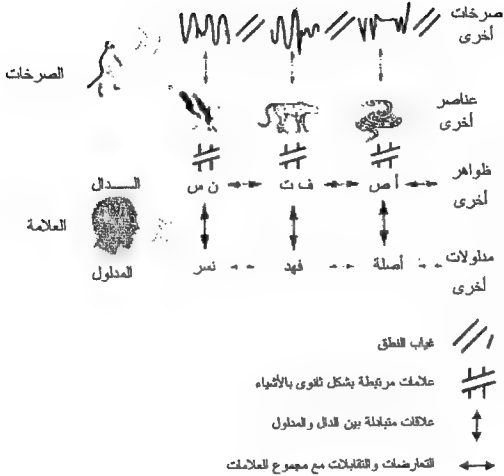 صرخات
أخرى
الصرخات
عناصر
أخرى
ظواهر
أخرى
أ ص
ف ت
ن س
الـــدال
العلامة
مدلولات
أخرى
أصلة
فهد
نسر
المدلول
غياب النطق
علامات مرتبطة بشكل ثانوى بالأشياء
علاقات متبادلة بين الدال والمدلول
التمارضات والتقابلات مع مجموع العلامات